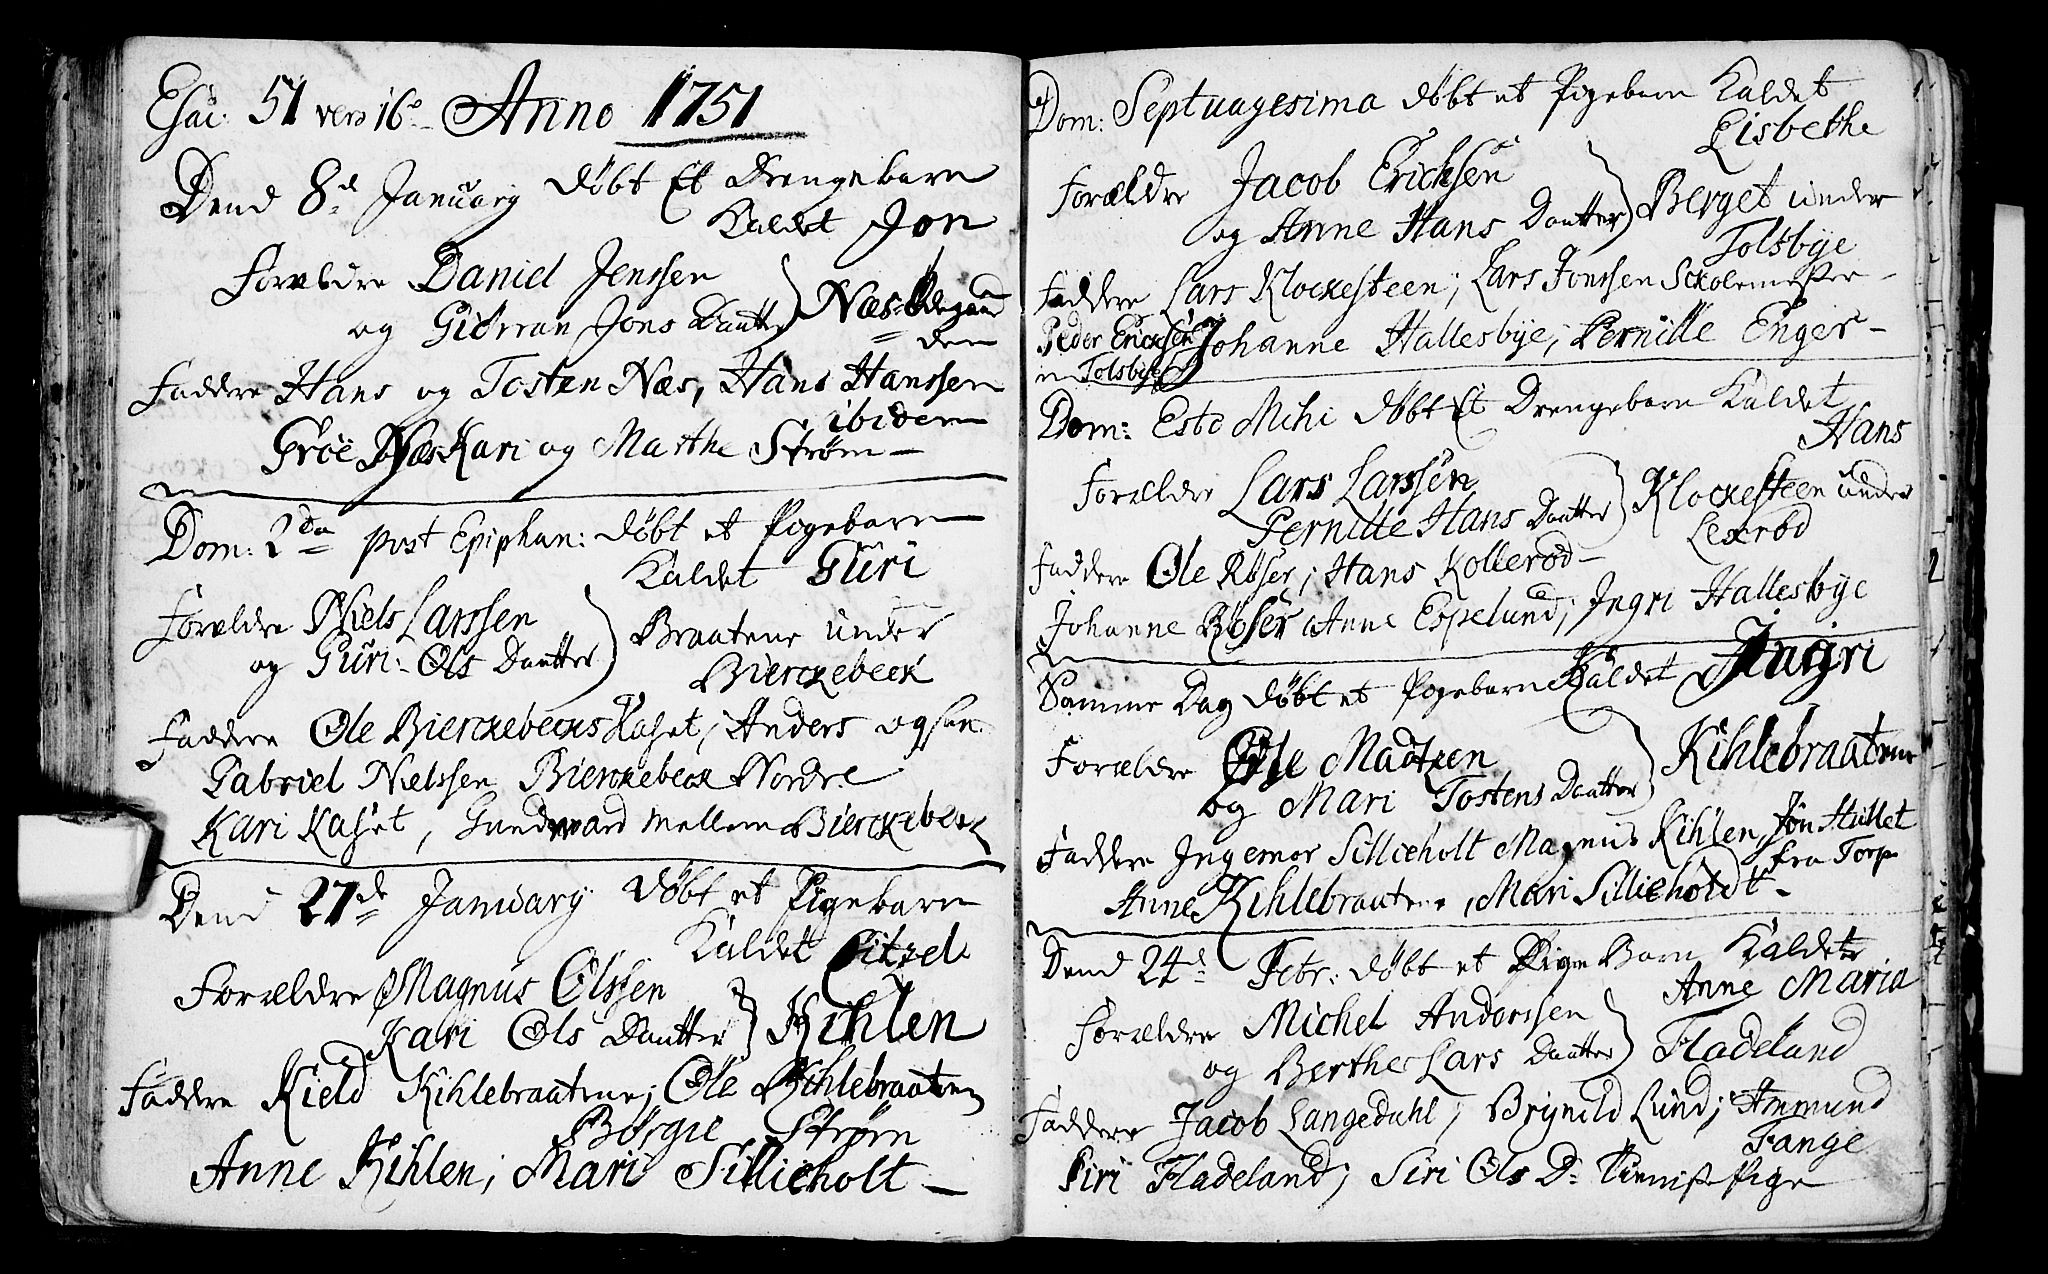 Esai: 51 vers 16. Anno 1751
Dend 8de January døbt Et Drengebarn
Kaldet Jon
Forældre Daniel Jenssen
og Gidrran Jons Daatter Næs-Ødegaard
Faddere Hans og Tosten Næs, Hans Hanssen
ibidem
Groe Næs Kari og Marthe Strøm
Dom: 2da post Epiphan: døbt et Pigebarn
Kaldet Guri
Forældre Niels Larssen
og Guri Ols Daatter Braatene under
Bierckebeck
Faddere Ole Bierckebecks Kaset, Anders
Gabriel Nielssen Bierckebeck Nordre
Kari Kaset, Gundvaard Mellem Bierckebeck
Dend 27de January døbt et Pigebarn
Kaldet Citzel
Forældre Magnus Olssen
Kari Ols Daatter Kihlen
Faddere Kield Kihlebraatene, Ole Kihlebraaten
Børgie Strøm
Anne Kihlen, Mari Sillieholt
Dom: Septuagesima døbt et Pigebarn Kaldet
Lisbethe
Forældre Jacob Erichsen
og Anne Hans Daatter Berget under
Tolsbye
Faddere Lars Klockesteen, Lars Jonssen Skolemester
Peder Ericksen Johanne Hallesbye, Pernille Enger
Tolsbye
Dom: Esto Mihi døbt Et Drengebarn Kaldet
Hans
Forældre Lars Larssen
Pernille Hans Daatter Klockesteen under
Lexrød
Faddere Ole Røser, Hans Kollerød
Johanne Røser Anne Espelund, Ingri Hallesbye
Samme Dag døbt et Pigebarn Kaldet Jngri
Forældre Ole Madtzen
og Mari Tostens Daatter Kihlebraatene
Faddere Ingemor Sillieholt Magnus Kihlen, Jon Hullet
fra Torp
Anne Kihlebraatene, Mari Sillieholdt
Dend 24de Febr: døbt et Pige Barn Kaldet
Anne Maria
Forældre Michel Anderssen
og Berthe Lars Daatter Fladeland
Faddere Jacob Langedahl, Brynild Lund, Ammund
Tange
Siri Fladeland, Siri Ols D: Pige